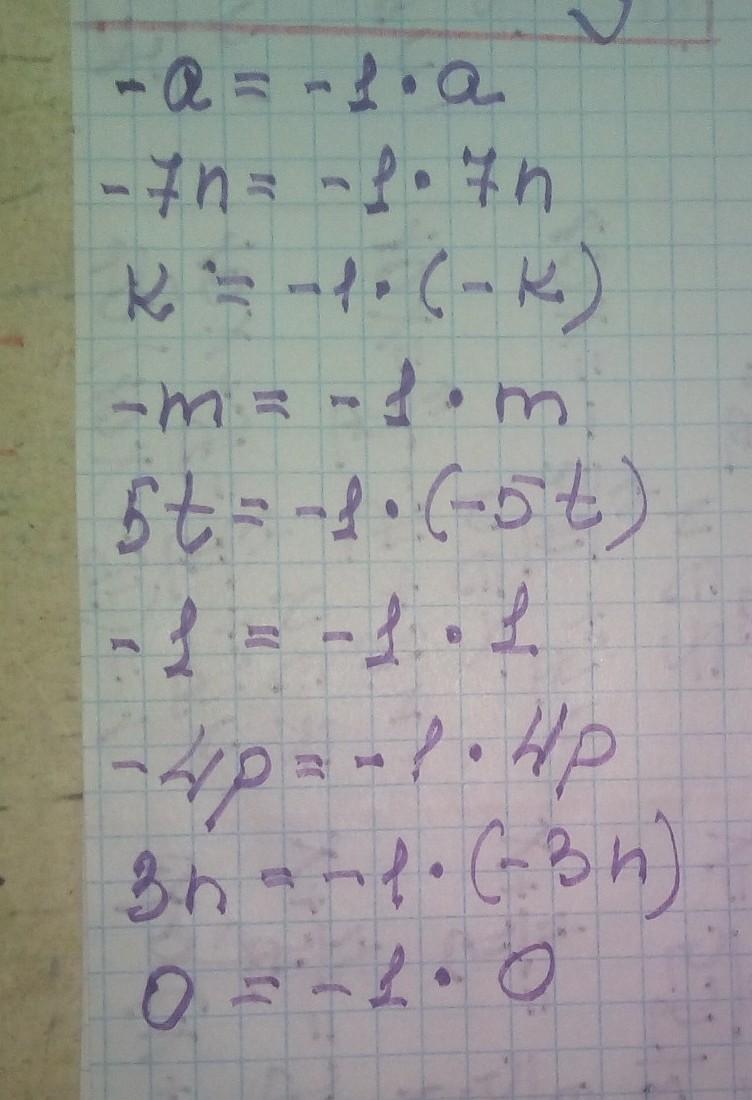 -a = -1·a
-7n = -1·7n
k = -1·(-k)
-m = -1·m
5t = -1·(-5t)
-1 = -1·1
-4p = -1·4p
3n = -1·(-3n)
0 = -1·0